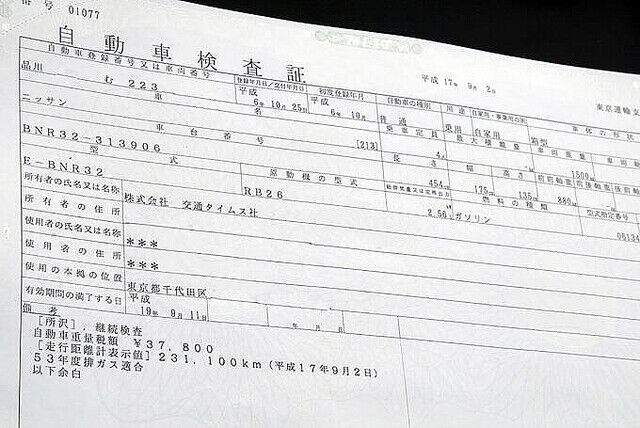 番号 01077
自動車検査証
平成 17年 9月 2日
東京運輸支
自動車登録番号又は車両番号
登録年月日/交付年月日
初度登録年月
自動車の種別
用途
自家用・事業用の別
車体の形状
品川 む 223
平成 6年 10月 25日
平成 6年 10月
普通
乗用
自家用
箱型
車名
乗車定員
最大積載量
車両重量
車両
ニッサン
[213]
4人
1500
車台番号
長さ
幅
高さ
前前軸重
前後軸重
後前軸重
BNR32-313906
454
175
135
880
型式
原動機の型式
総排気量又は定格出力
燃料の種類
型式指定番号
E-BNR32
RB26
2.56
ガソリン
06134
所有者の氏名又は名称
株式会社 交通タイムス社
所有者の住所
使用者の氏名又は名称
***
使用者の住所
***
使用の本拠の位置
東京都千代田区
有効期間の満了する日
平成 19年 9月 11日
年 月 日
備考
[所沢],継続検査
自動車重量税額 ¥37,800
[走行距離計表示値]231,100km(平成17年9月2日)
53年度排ガス適合
以下余白